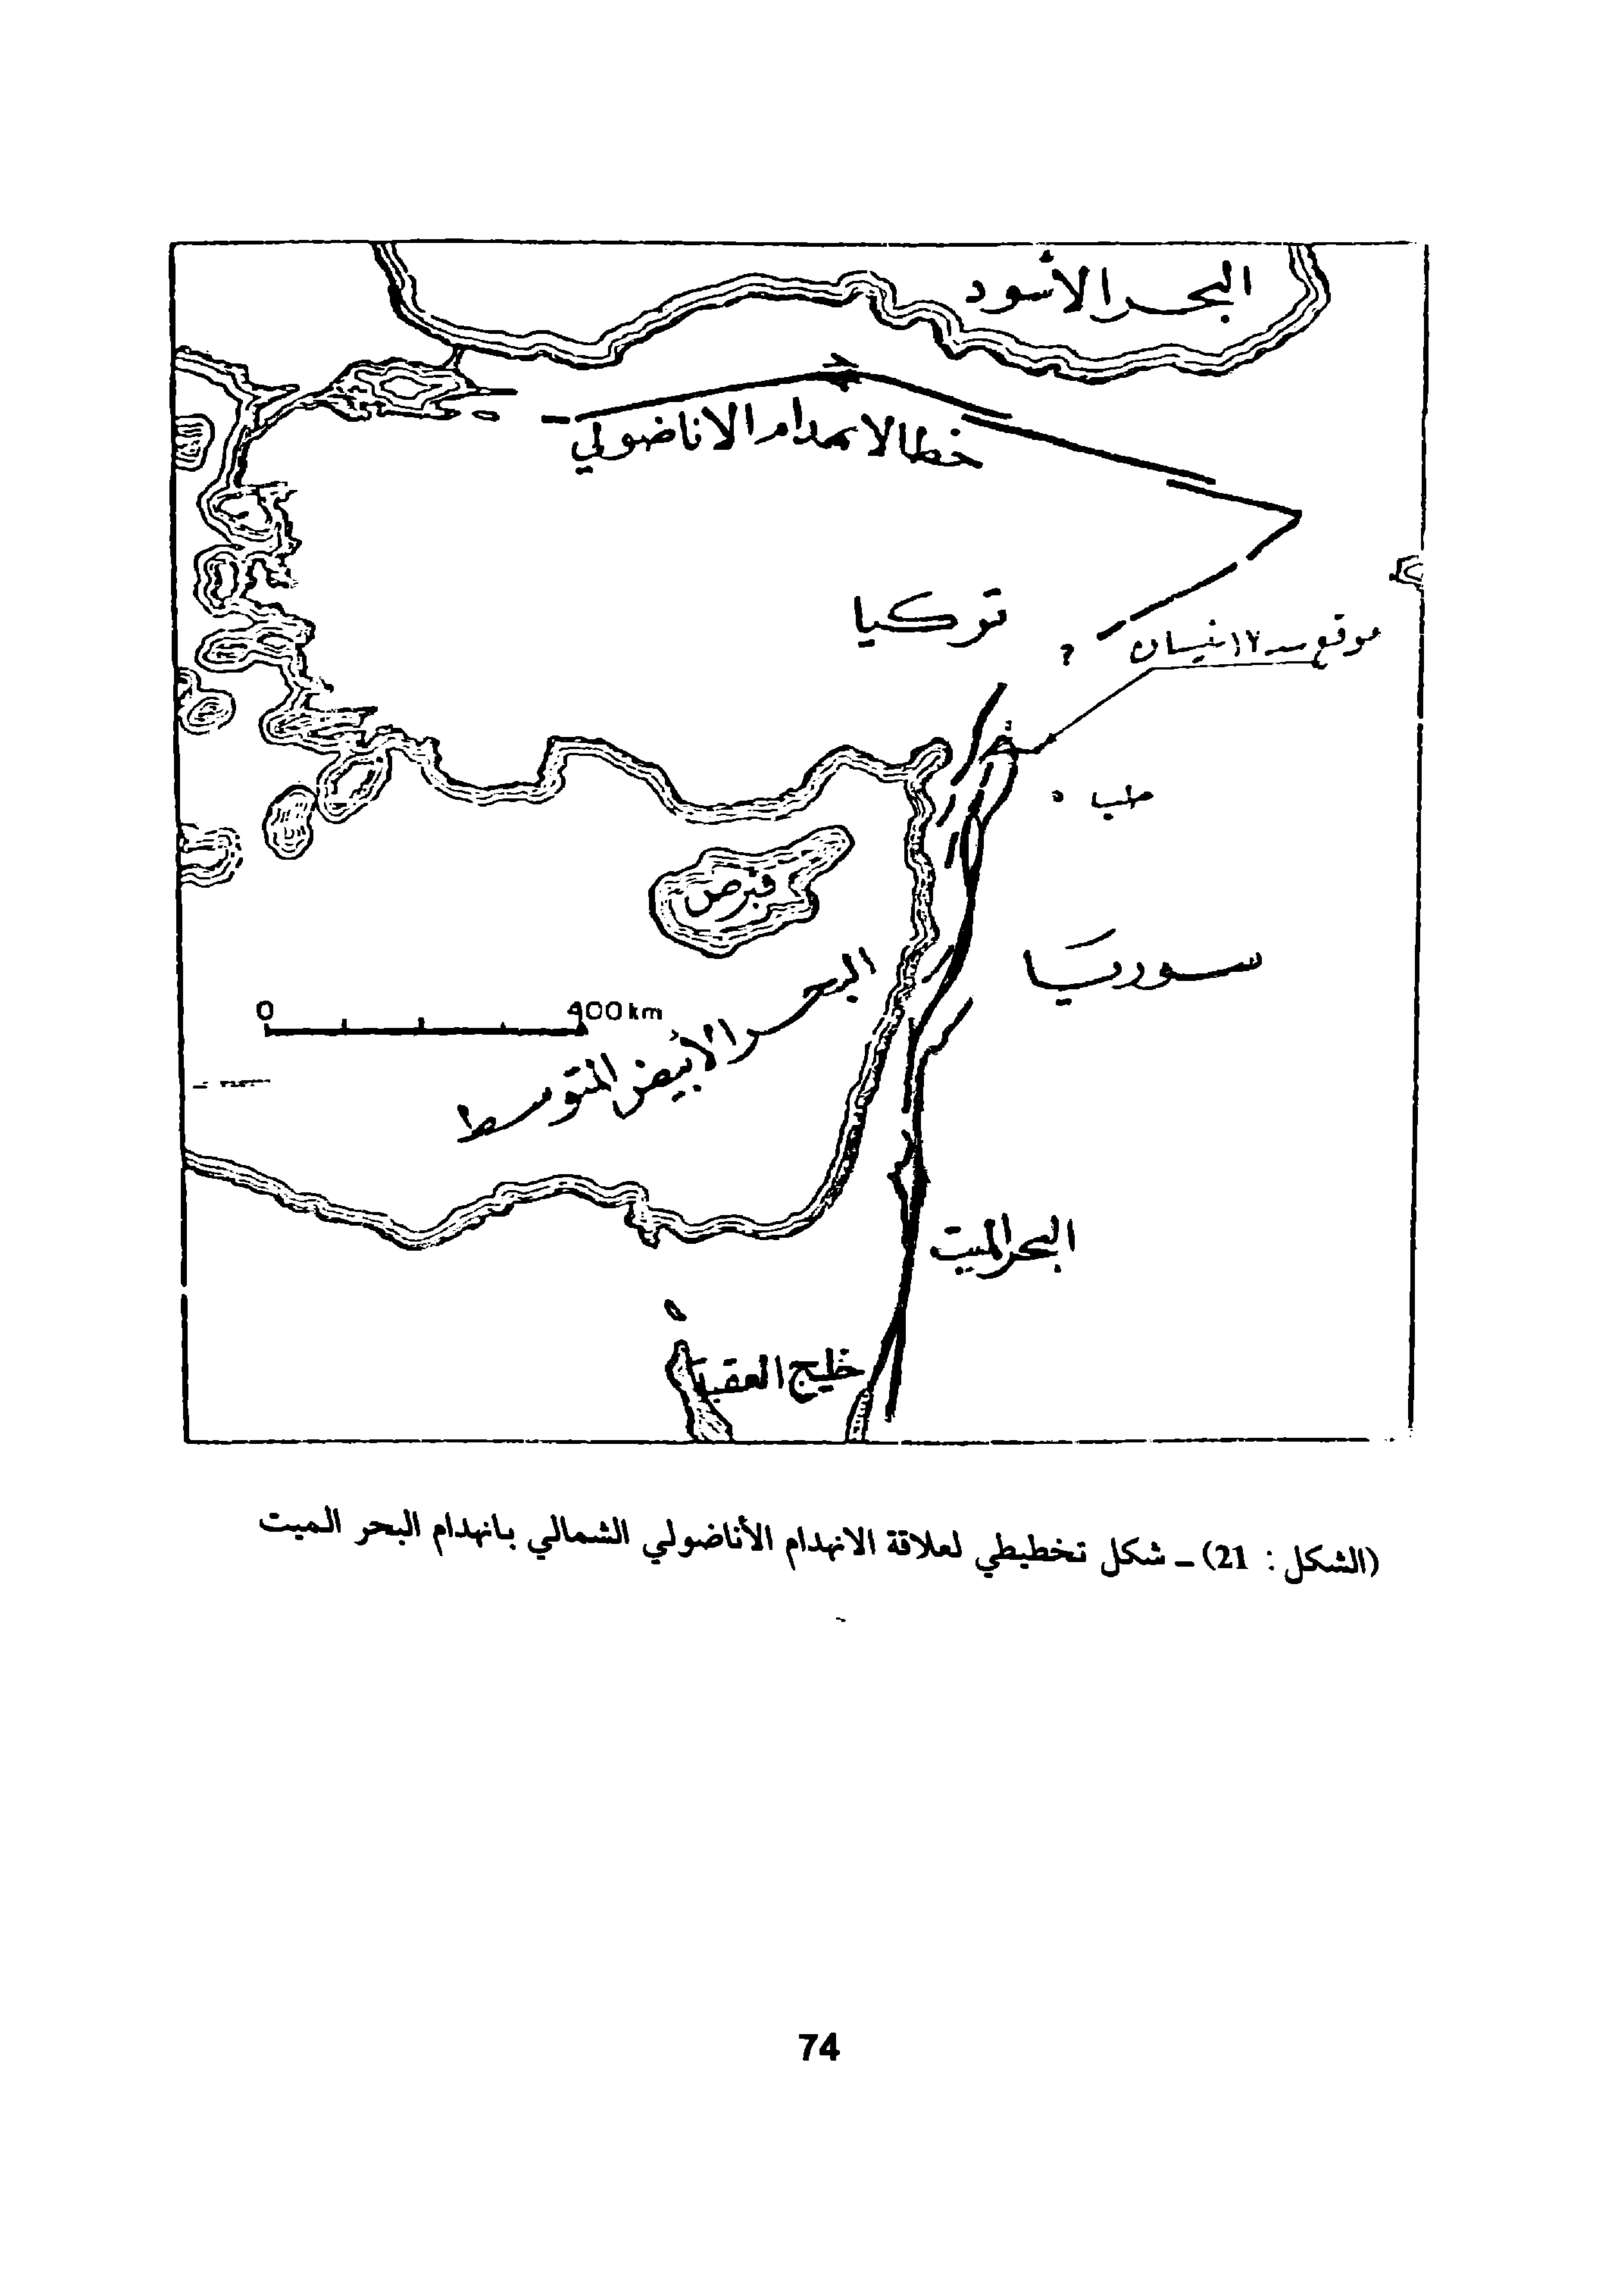 البحر الأسود
خط الانهدام الاناضولي
تركيا
?
موقع سد ١٧ نيسان
حلب
قبرص
سوريا
0 400 km
البحر الأبيض المتوسط
البحر الميت
خليج العقبة
(الشكل : 21) ـ شكل تخطيطي لعلاقة الانهدام الأناضولي الشمالي بانهدام البحر الميت
74